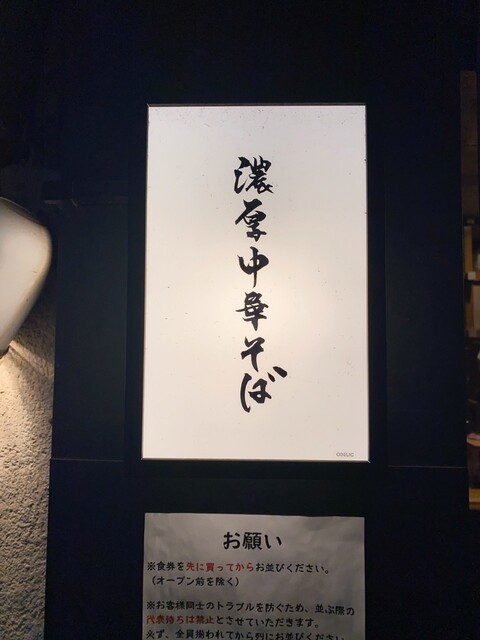 濃厚中華そば
ODELIC
お願い
※食券を先に買ってからお並びください。
(オープン前を除く)
※お客様同士のトラブルを防ぐため、並ぶ際の
代表待ちは禁止とさせていただきます。
必ず、全員揃われてから列にお並びください